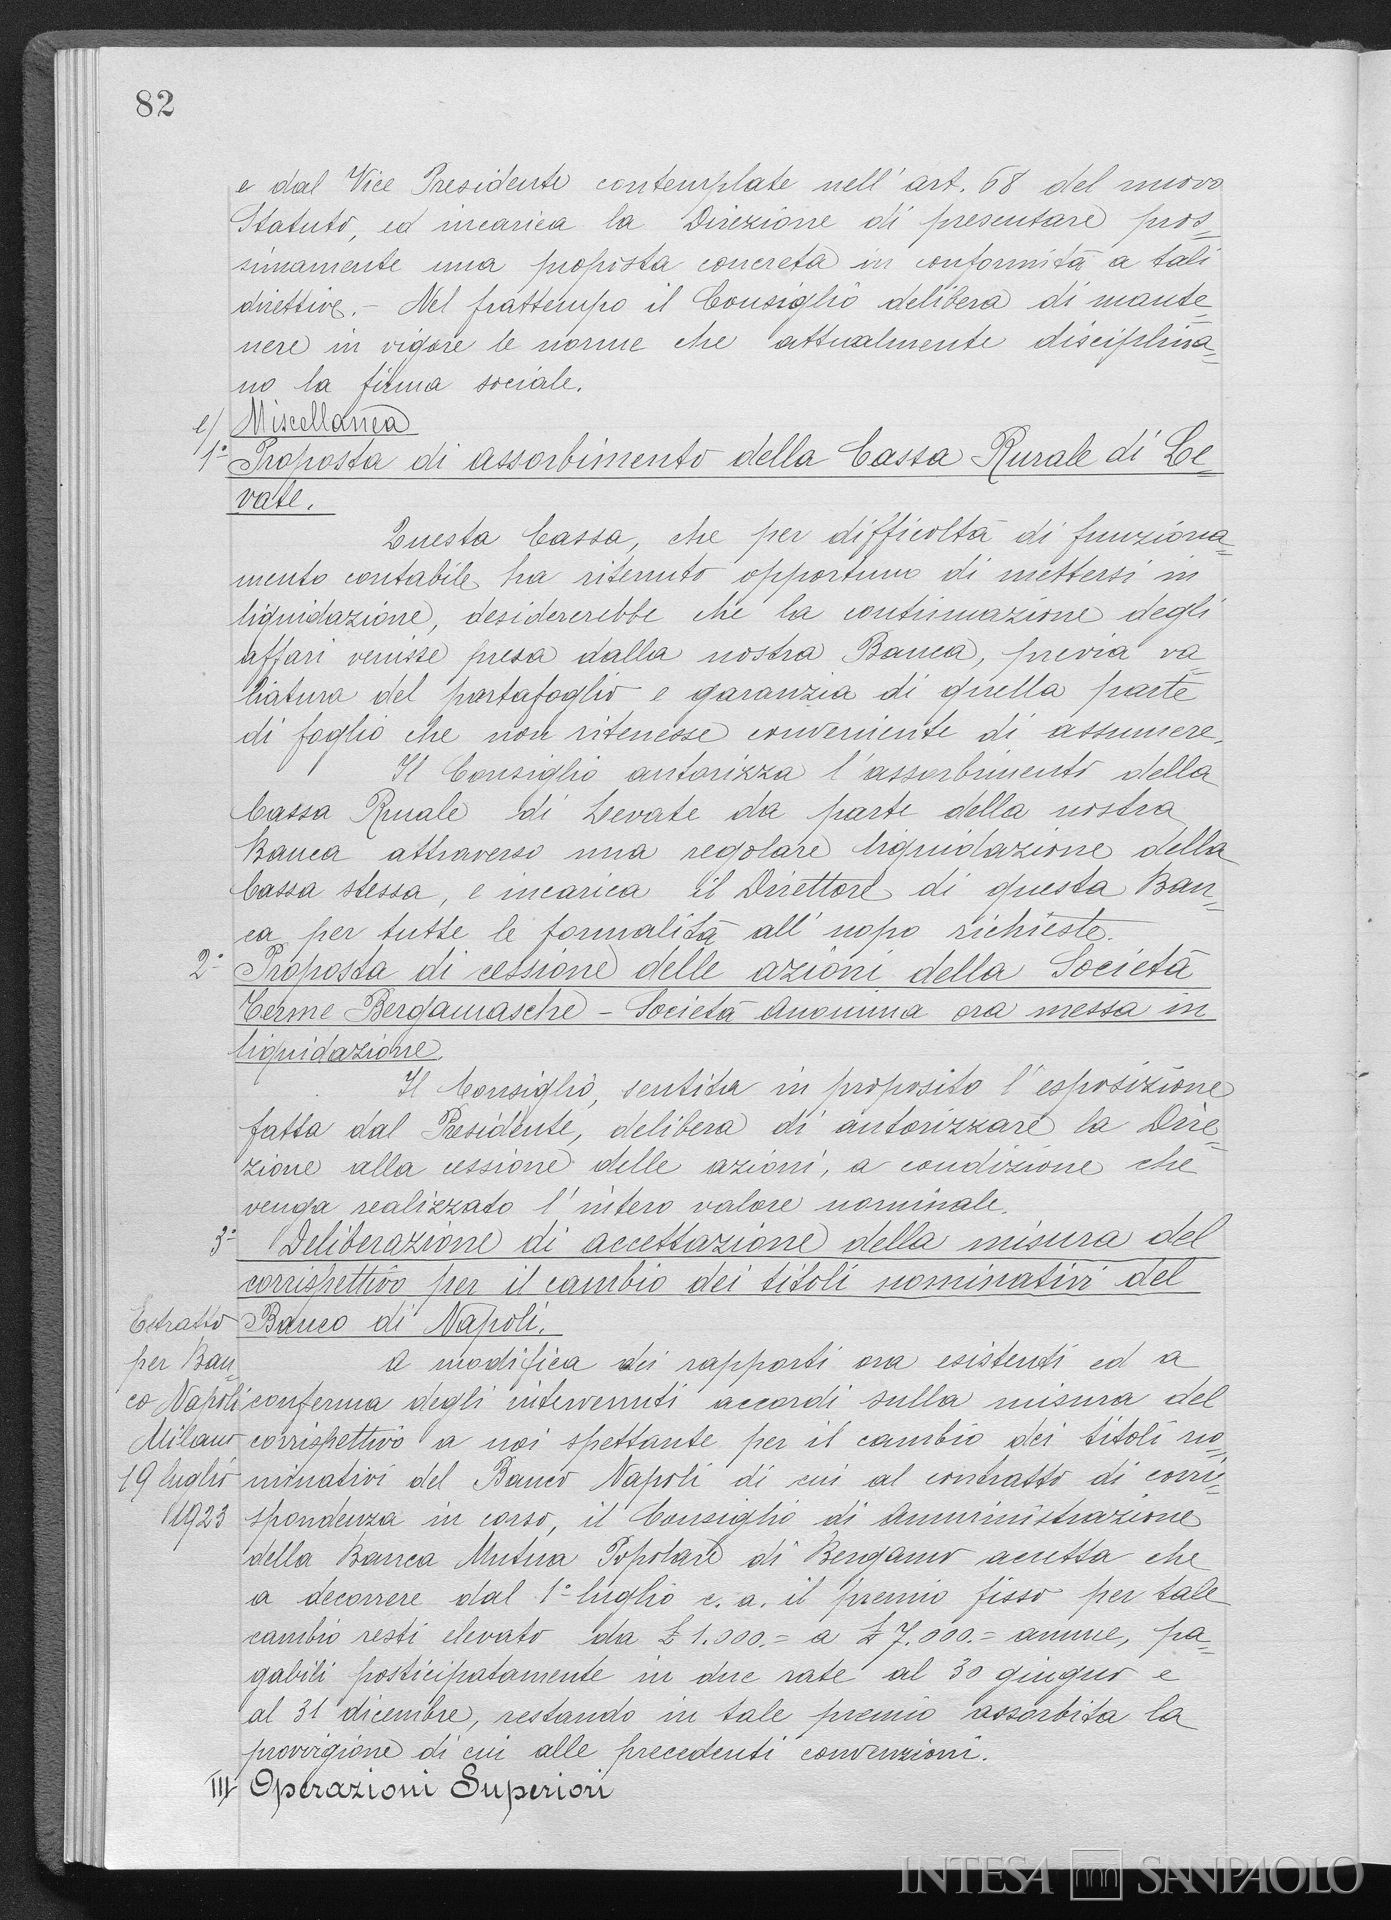 82
e dal Vice Presidente contemplate nell'art. 68 del nuovo
Statuto, ed incarica la Direzione di presentare pros=
simamente una proposta concreta in conformità a tali
direttive. – Nel frattempo il Consiglio delibera di mante=
nere in vigore le norme che attualmente disciplina=
no la firma sociale.
e/ Miscellanea
1º Proposta di assorbimento della Cassa Rurale di Le=
vate.
Questa Cassa, che per difficoltà di funziona=
mento contabile ha ritenuto opportuno di mettersi in
liquidazione, desidererebbe che la continuazione degli
affari venisse presa dalla nostra Banca, previa va=
liatura del portafoglio e garanzia di quella parte
di foglio che non ritenesse conveniente di assumere.
Il Consiglio autorizza l'assorbimento della
Cassa Rurale di Levate da parte della nostra
Banca attraverso una regolare liquidazione della
Cassa stessa, e incarica il Direttore di questa Ban=
ca per tutte le formalità all'uopo richieste.
2º Proposta di cessione delle azioni della Società
Terme Bergamasche – Società Anonima ora messa in
liquidazione.
Il Consiglio, sentita in proposito l'esposizione
fatta dal Presidente, delibera di autorizzare la Dire=
zione alla cessione delle azioni, a condizione che
venga realizzato l'intero valore nominale.
3º Deliberazione di accettazione della misura del
corrispettivo per il cambio dei titoli nominativi del
Banco di Napoli.
Estratto
per Ban=
co Napoli
Milano
19 luglio
1923
A modifica dei rapporti ora esistenti ed a
conferma degli intervenuti accordi sulla misura del
corrispettivo a noi spettante per il cambio dei titoli no=
minativi del Banco Napoli di cui al contratto di corri=
spondenza in corso, il Consiglio di Amministrazione
della Banca Mutua Popolare di Bergamo accetta che
a decorrere dal 1º luglio c. a. il premio fisso per tale
cambio resti elevato da £ 1.000.= a £ 7.000.= annue, pa=
gabili posticipatamente in due rate al 30 giugno e
al 31 dicembre, restando in tale premio assorbita la
provvigione di cui alle precedenti convenzioni.
III Operazioni Superiori
INTESA SANPAOLO